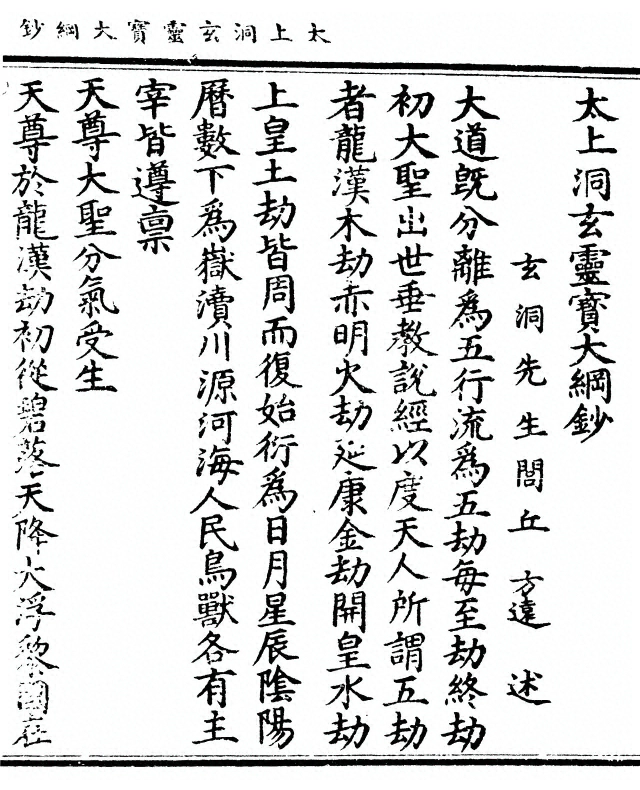 太上洞玄靈寳大綱鈔
太上洞玄靈寳大綱鈔
玄洞先生閭丘方遠述
大道旣分離爲五行流爲五劫每至劫終劫
初大聖出世垂教說經以度天人所謂五劫
者龍漢木劫赤明火劫延康金劫開皇水劫
上皇土劫皆周而復始衍爲日月星辰陰陽
曆數下爲嶽瀆川源河海人民鳥獸各有主
宰皆遵禀
天尊大聖分氣受生
天尊於龍漢劫初從碧落天降大浮黎國在